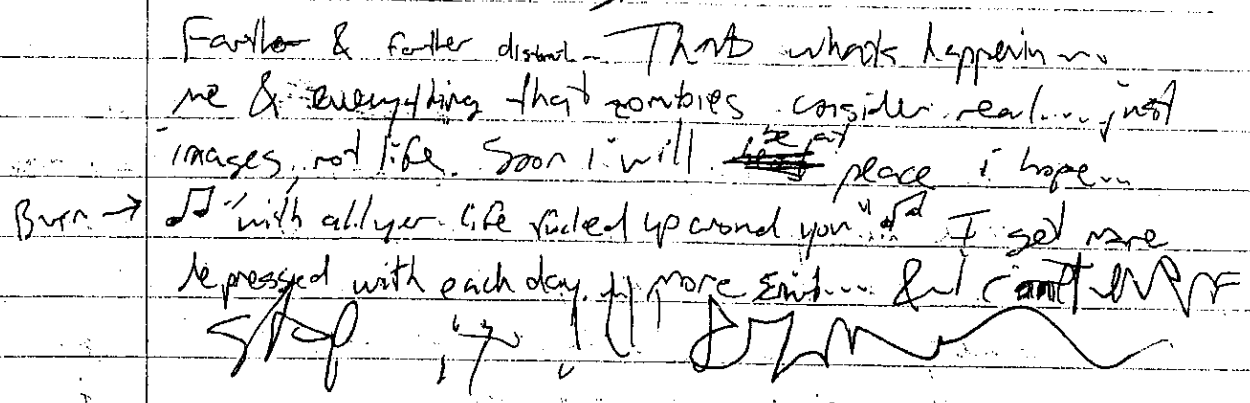 Farther & farther distant... That's what's happening...
me & everything that zombies consider real... just
images, not life. Soon i will be at peace i hope...
Burn → ♫ "with all yer life fucked up around you" ♫ I get more
depressed with each day, more ... & i can't ever
stop it!